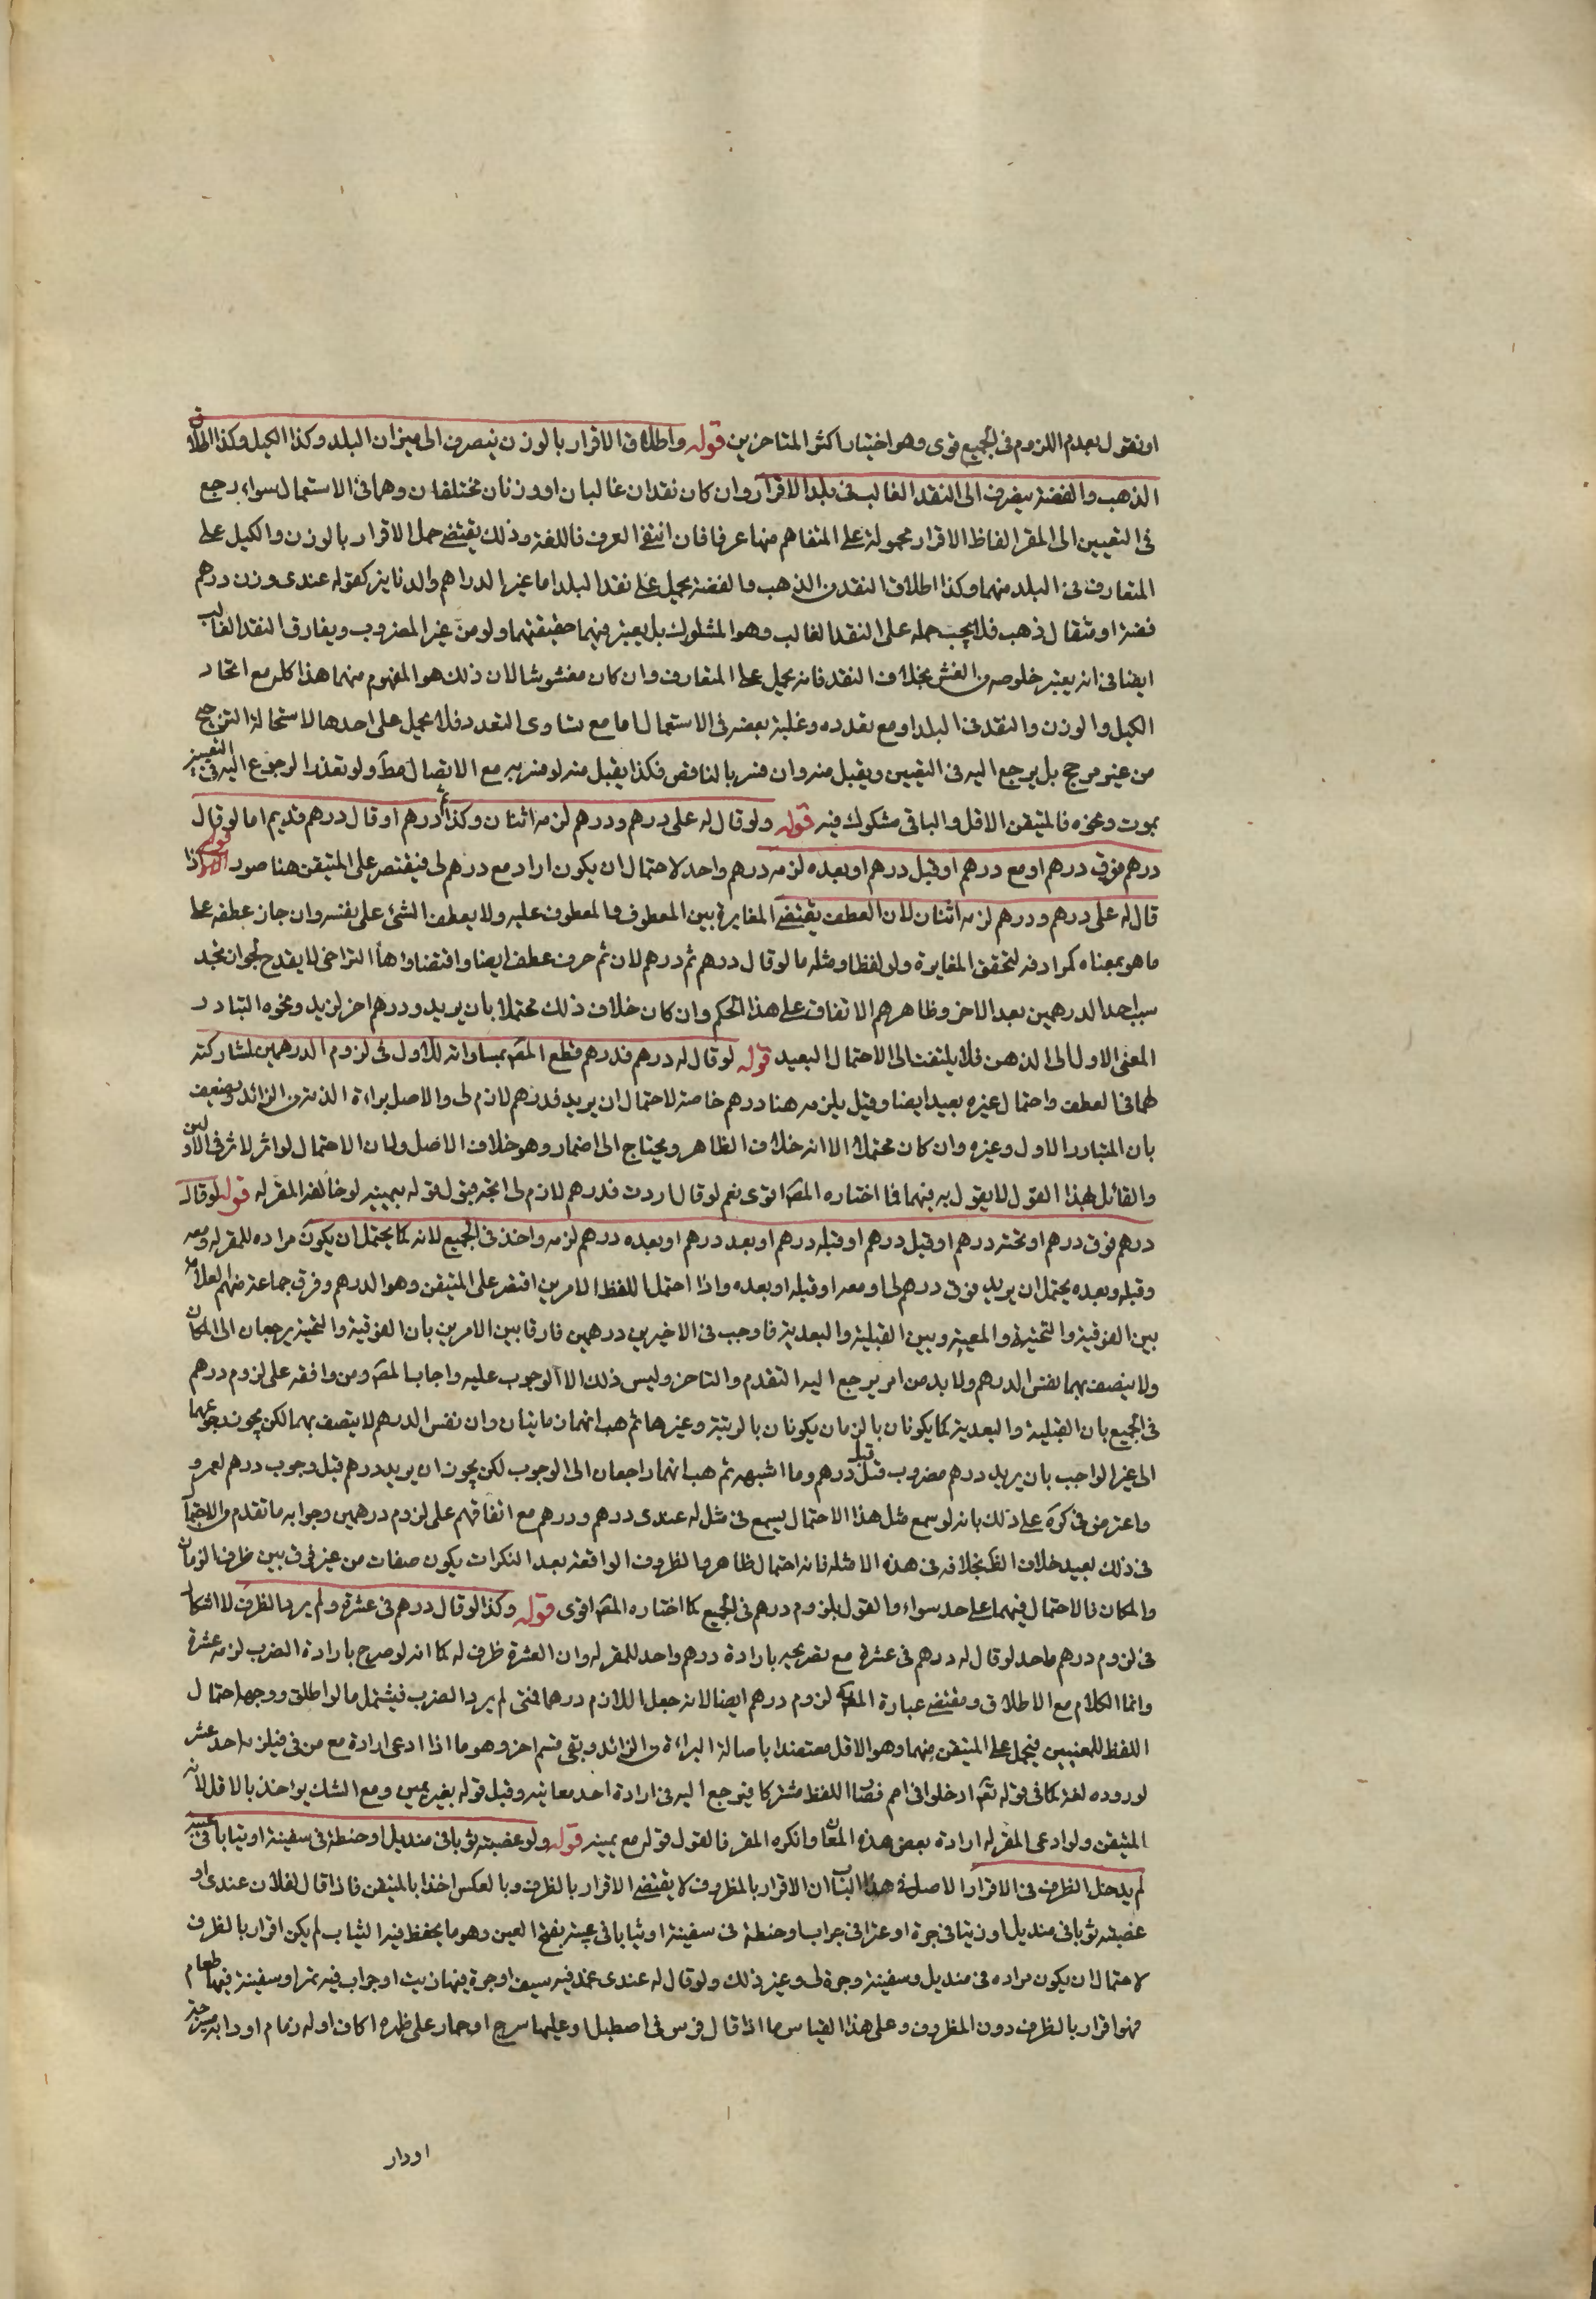 او نقول بعدم اللزوم فى الجميع قوى وهو اختيار اكثر المتاخرين قوله واطلاق الاقرار بالوزن ينصرف الى ميزان البلد وكذا الكيل وكذا اطلاق
الذهب والفضة ينصرف الى النقد الغالب فى بلد الاقرار وان كان نقدان غالبان او وزنان مختلفان وهما فى الاستعمال سواء رجع
فى التعيين الى المقر الفاظ الاقرار محمولة على المتفاهم منها عرفا فان انتفى العرف فاللغة وذلك يقتضى حمل الاقرار بالوزن والكيل على
المتعارف فى البلد منهما وكذا اطلاق النقد من الذهب والفضة يحمل على نقد البلد اما غير الدراهم والدنانير كقوله عندى وزن درهم
فضة او مثقال ذهب فلا يجب حمله على النقد الغالب وهو المشكوك بل يعتبر فيهما حقيقتهما ولو من غير المضروب ويفارق النقد الغالب
ايضا فى انه يعتبر خلوصه من الغش بخلاف النقد فانه يحمل على المتعارف وان كان مغشوشا لان ذلك هو المفهوم منهما هذا كله مع اتحاد
الكيل والوزن والنقد فى البلد او مع تعدده وغلبة بعضه فى الاستعمال اما مع تساوى التعدد فلا يحمل على احدها لاستحالة الترجيح
من غير مرجح بل يرجع اليه فى التعيين ويقبل منه وان فسر بالناقص فكذا يقبل منه لو فسر به مع الاتصال مطّ ولو تعذر الرجوع اليه فى التعيين
بموت ونحوه فالمتيقن الاقل والباقى مشكوك فيه قوله ولو قال له على درهم ودرهم لزمه اثنان وكذا ثم درهم او قال درهم فديم اما لو قال
درهم فوق درهم او مع درهم او قبل درهم او بعده لزمه درهم واحد لاحتمال ان يكون اراد مع درهم لى فيقتصر على المتيقن هنا صور الاولى اذا
قال له على درهم ودرهم لزمه اثنان لان العطف يقتضى المغايرة بين المعطوف والمعطوف عليه ولا يعطف الشئ على نفسه وان جاز عطفه على
ما هو بمعناه كمرادفه لتحقق المغايرة ولو لفظا ومثله ما لو قال درهم ثم درهم لان ثم حرف عطف ايضا واقتضاؤها التراخى لا يقدح لجواز تجدد
سبب احد الدرهمين بعد الاخر وظاهرهم الاتفاق على هذا الحكم وان كان خلاف ذلك محتملا بان يريد ودرهم اخر لزيد ونحوه لتبادر
المعنى الاول الى الذهن فلا يلتفت الى الاحتمال البعيد قوله لو قال له درهم فدرهم قطع المصّ بمساواته للاول فى لزوم الدرهمين لمشاركته
لهما فى العطف واحتمال غيره بعيد ايضا وقيل يلزمه هنا درهم خاصة لاحتمال ان يريد فدرهم لازم لى والاصل براءة الذمة من الزائد ويضعف
بان المتبادر الاول وغيره وان كان محتملا الا انه خلاف الظاهر ويحتاج الى اضمار وهو خلاف الاصل ولان الاحتمال لو اثر لاثر فى الاولين
والقائل بهذا القول لا يقول به فيهما فما اختاره المصّ اقوى نعم لو قال اردت فدرهم لازم لى اتجه قبول قوله بيمينه لو خالفه المقر له قوله لو قال
درهم فوق درهم او تحته درهم او قبل درهم او قبله درهم او بعد درهم او بعده درهم لزمه واحد فى الجميع لانه كما يحتمل ان يكون مراده للمقر له ومعه
وقبله وبعده يحتمل ان يريد فوق درهم لى او معه او قبله او بعده واذا احتمل اللفظ الامرين اقتصر على المتيقن وهو الدرهم وفرق جماعة منهم العلامة
بين الفوقية والتحتية والمعية وبين القبلية والبعدية فاوجب فى الاخيرين درهمين فارقا بين الامرين بان الفوقية والتحتية يرجعان الى المكان
ولا يتصف بهما نفس الدرهم ولا بد من امر يرجع اليه التقدم والتاخر وليس ذلك الا الوجوب عليه واجاب المصّ ومن وافقه على لزوم درهم
فى الجميع بان القبلية والبعدية كما يكونان بالزمان يكونان بالرتبة وغيرها ثم هب انهما زمانيان وان نفس الدرهم لا يتصف بهما لكن يجوز رجوعهما
الى غير الواجب بان يريد درهم مضروب قبل درهم وما اشبهه ثم هب انهما راجعان الى الوجوب لكن يجوز ان يريد درهم قبل وجوب درهم لعمرو
واعترض فى كرة على ذلك بانه لو سمع مثل هذا الاحتمال يسمع فى مثل له عندى درهم ودرهم مع اتفاقهم على لزوم درهمين وجوابه ما تقدم من الاحتمال
فى ذلك بعيد خلاف الظّ بخلافه فى هذه الامثلة فانه احتمال ظاهر والظروف الواقعة بعد النكرات يكون صفات من غير فرق بين ظرف الزمان
والمكان فالاحتمال فيهما على حد سواء والقول بلزوم درهم فى الجميع كما اختاره المصّ اقوى قوله وكذا لو قال درهم فى عشرة ولم يرد الظرف لا اشكال
فى لزوم درهم واحد لو قال له درهم فى عشرة مع تصريحه بارادة درهم واحد للمقر له وان العشرة ظرف له كما انه لو صرح بارادة الضرب لزمه عشرة
وانما الكلام مع الاطلاق ومقتضى عبارة المصّ لزوم درهم ايضا لانه جعل اللازم درهما متى لم يرد الضرب فيشمل ما لو اطلق ووجهه احتمال
اللفظ للمعنيين فيحمل على المتيقن منهما وهو الاقل معتضدا باصالة البراءة من الزائد وبقى قسم اخر وهو ما اذا ادعى ارادة مع من فى فيلزمه احد عشر
لوروده لغة كما فى قوله تعّ ادخلوا فى امم فصار اللفظ مشتركا فيرجع اليه فى ارادة احد معانيه وقبل قوله بغير يمين ومع الشك يواخذ بالاقل لانه
المتيقن ولو ادعى المقر له ارادة بعض هذه المعان وانكره المقر فالقول قوله مع يمينه قوله ولو غصبته ثوبا فى منديل او حنطة فى سفينة او ثيابا فى عيبة
لم يدخل الظرف فى الاقرار الاصل فى هذا الباب ان الاقرار بالمظروف لا يقتضى الاقرار بالظرف وبالعكس اخذا بالمتيقن فاذا قال لفلان عندى او
غصبته ثوبا فى منديل او زيتا فى جرة او تمرا فى جراب او حنطة فى سفينة او ثيابا فى عيبة بفتح العين وهو ما يحفظ فيه الثياب لم يكن اقرار بالظرف
لاحتمال ان يكون مراده فى منديل وسفينة وجرة لى وغير ذلك ولو قال له عندى غمد فيه سيف او جرة فيها زيت او جراب فيه تمر او سفينة فيها طعام
فهو اقرار بالظرف دون المظروف وعلى هذا القياس ما اذا قال فرس فى اصطبل او عليها سرج او حمار على ظهره اكاف او له زمام او دابة مسرجة
او دار